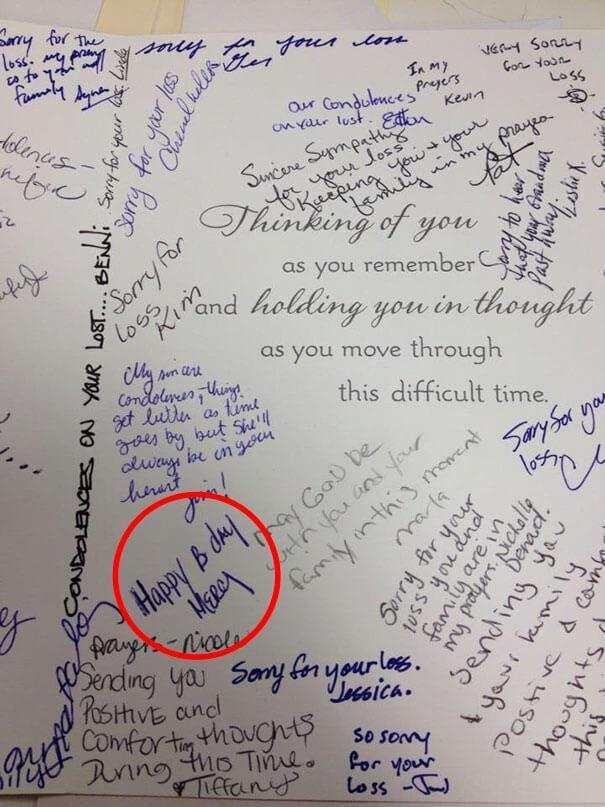 Sorry for the
loss.
family
sorry for your loss
VERY SORRY
FOR YOUR
LOSS
IN MY
Prayers
Kevin
our Condolences
on your lost. Ethan
Sorry for your loss. Linda
Sorry for your loss
Sincere Sympathy
for your loss
Keeping you + your
family in my prayer
Pat
Sorry to hear
that your Grandma
Past away.
Leslie K.
Thinking of you
as you remember
and holding you in thought
as you move through
this difficult time.
Sorry for
loss
Kim
CONDOLENCES ON YOUR LOST.... BENNI
My sincere
condolences, things
get better as time
goes by, but she'll
always be in your
heart
Sorry for you
loss
may God be
with you and your
family in this moment
marla
Happy B day
MERCY
Sorry for your
loss you and
family are in
my prayers. Nicholle
prayers - nicole
Sending you
Positive and
Comforting thoughts
During this Time.
Tiffany
Sorry for your loss.
Jessica.
so sorry
for your
loss
Sending you
& your family
positive &
thoughts
this